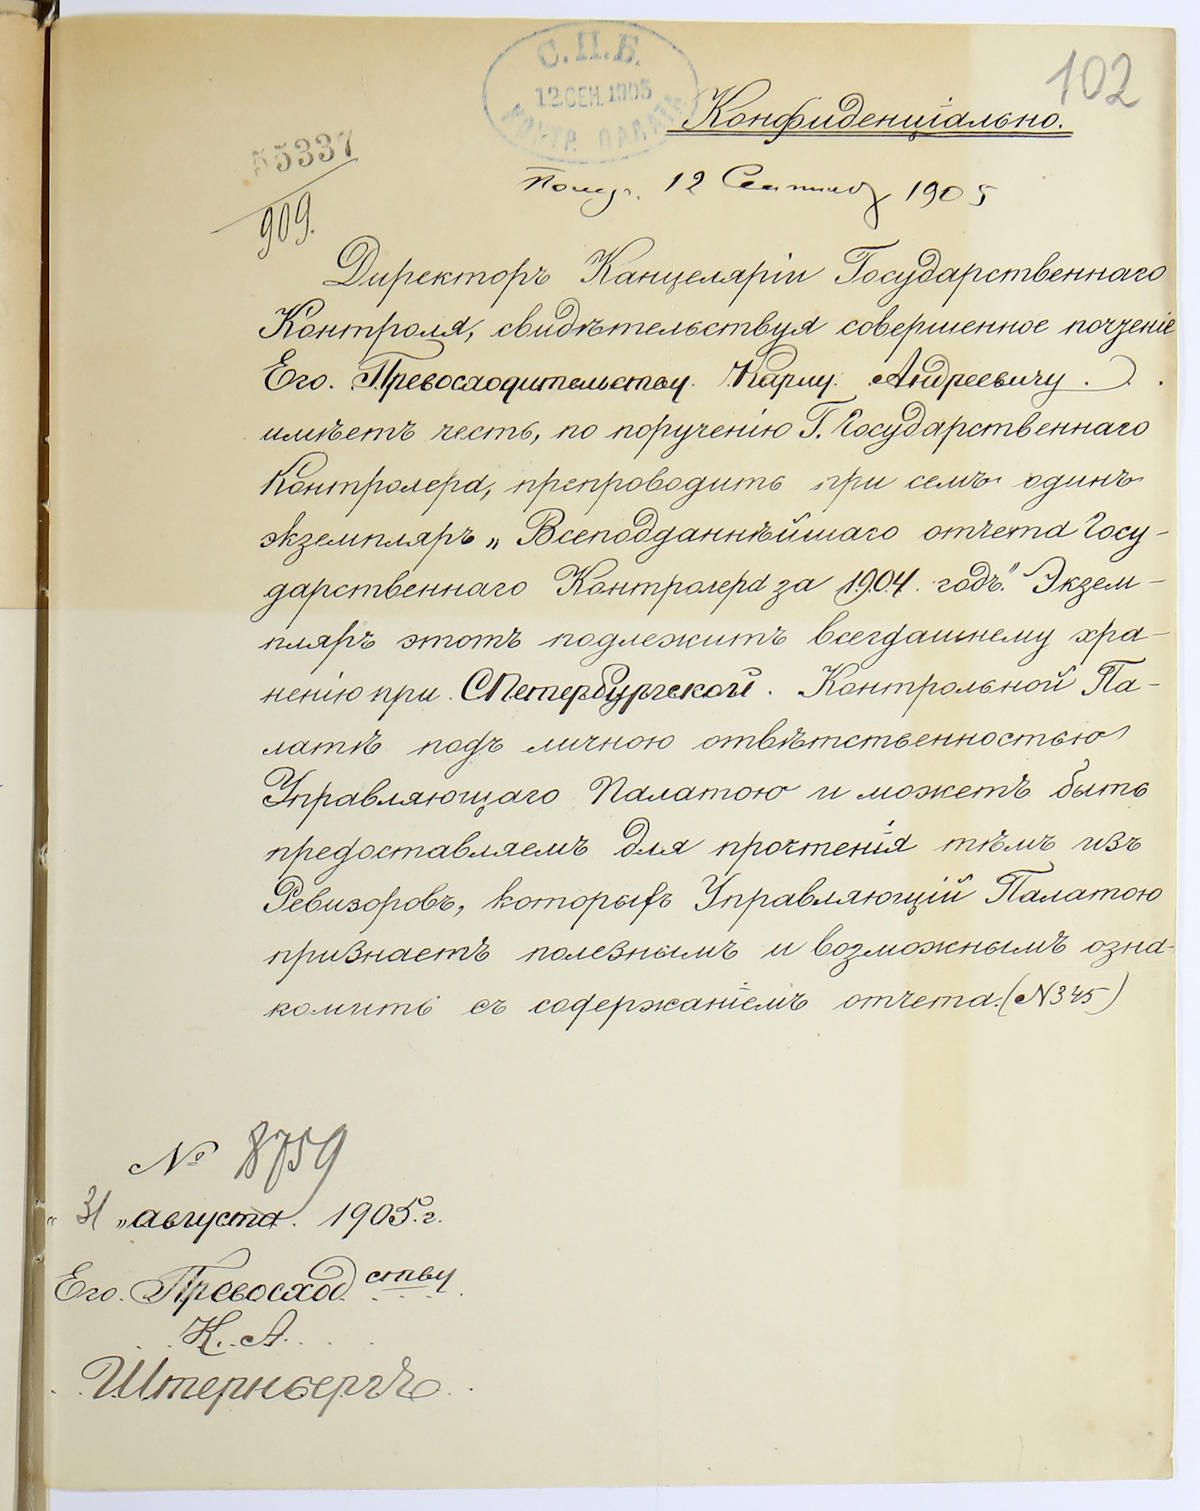 102
С.П.Б.
12.СЕН.1905
КОНТР. ПАЛАТА
Конфиденціально.
55337
909.
Получ. 12 Сентября 1905
Директоръ Канцеляріи Государственнаго
Контроля, свидѣтельствуя совершенное почтеніе
Его Превосходительству Карлу Андреевичу
имѣетъ честь, по порученію Г. Государственнаго
Контролера, препроводить при семъ одинъ
экземпляръ „Всеподданнѣйшаго отчета Госу-
дарственнаго Контролера за 1904 годъ." Экзем-
пляръ этотъ подлежитъ всегдашнему хра-
ненію при СПетербургской Контрольной Па-
латѣ подъ личною отвѣтственностью
Управляющаго Палатою и можетъ быть
предоставляемъ для прочтенія тѣмъ изъ
Ревизоровъ, которыхъ Управляющій Палатою
признаетъ полезнымъ и возможнымъ озна-
комить съ содержаніемъ отчета. (N345)
№ 8759
„31" августа 1905 г.
Его Превосходству
К. А.